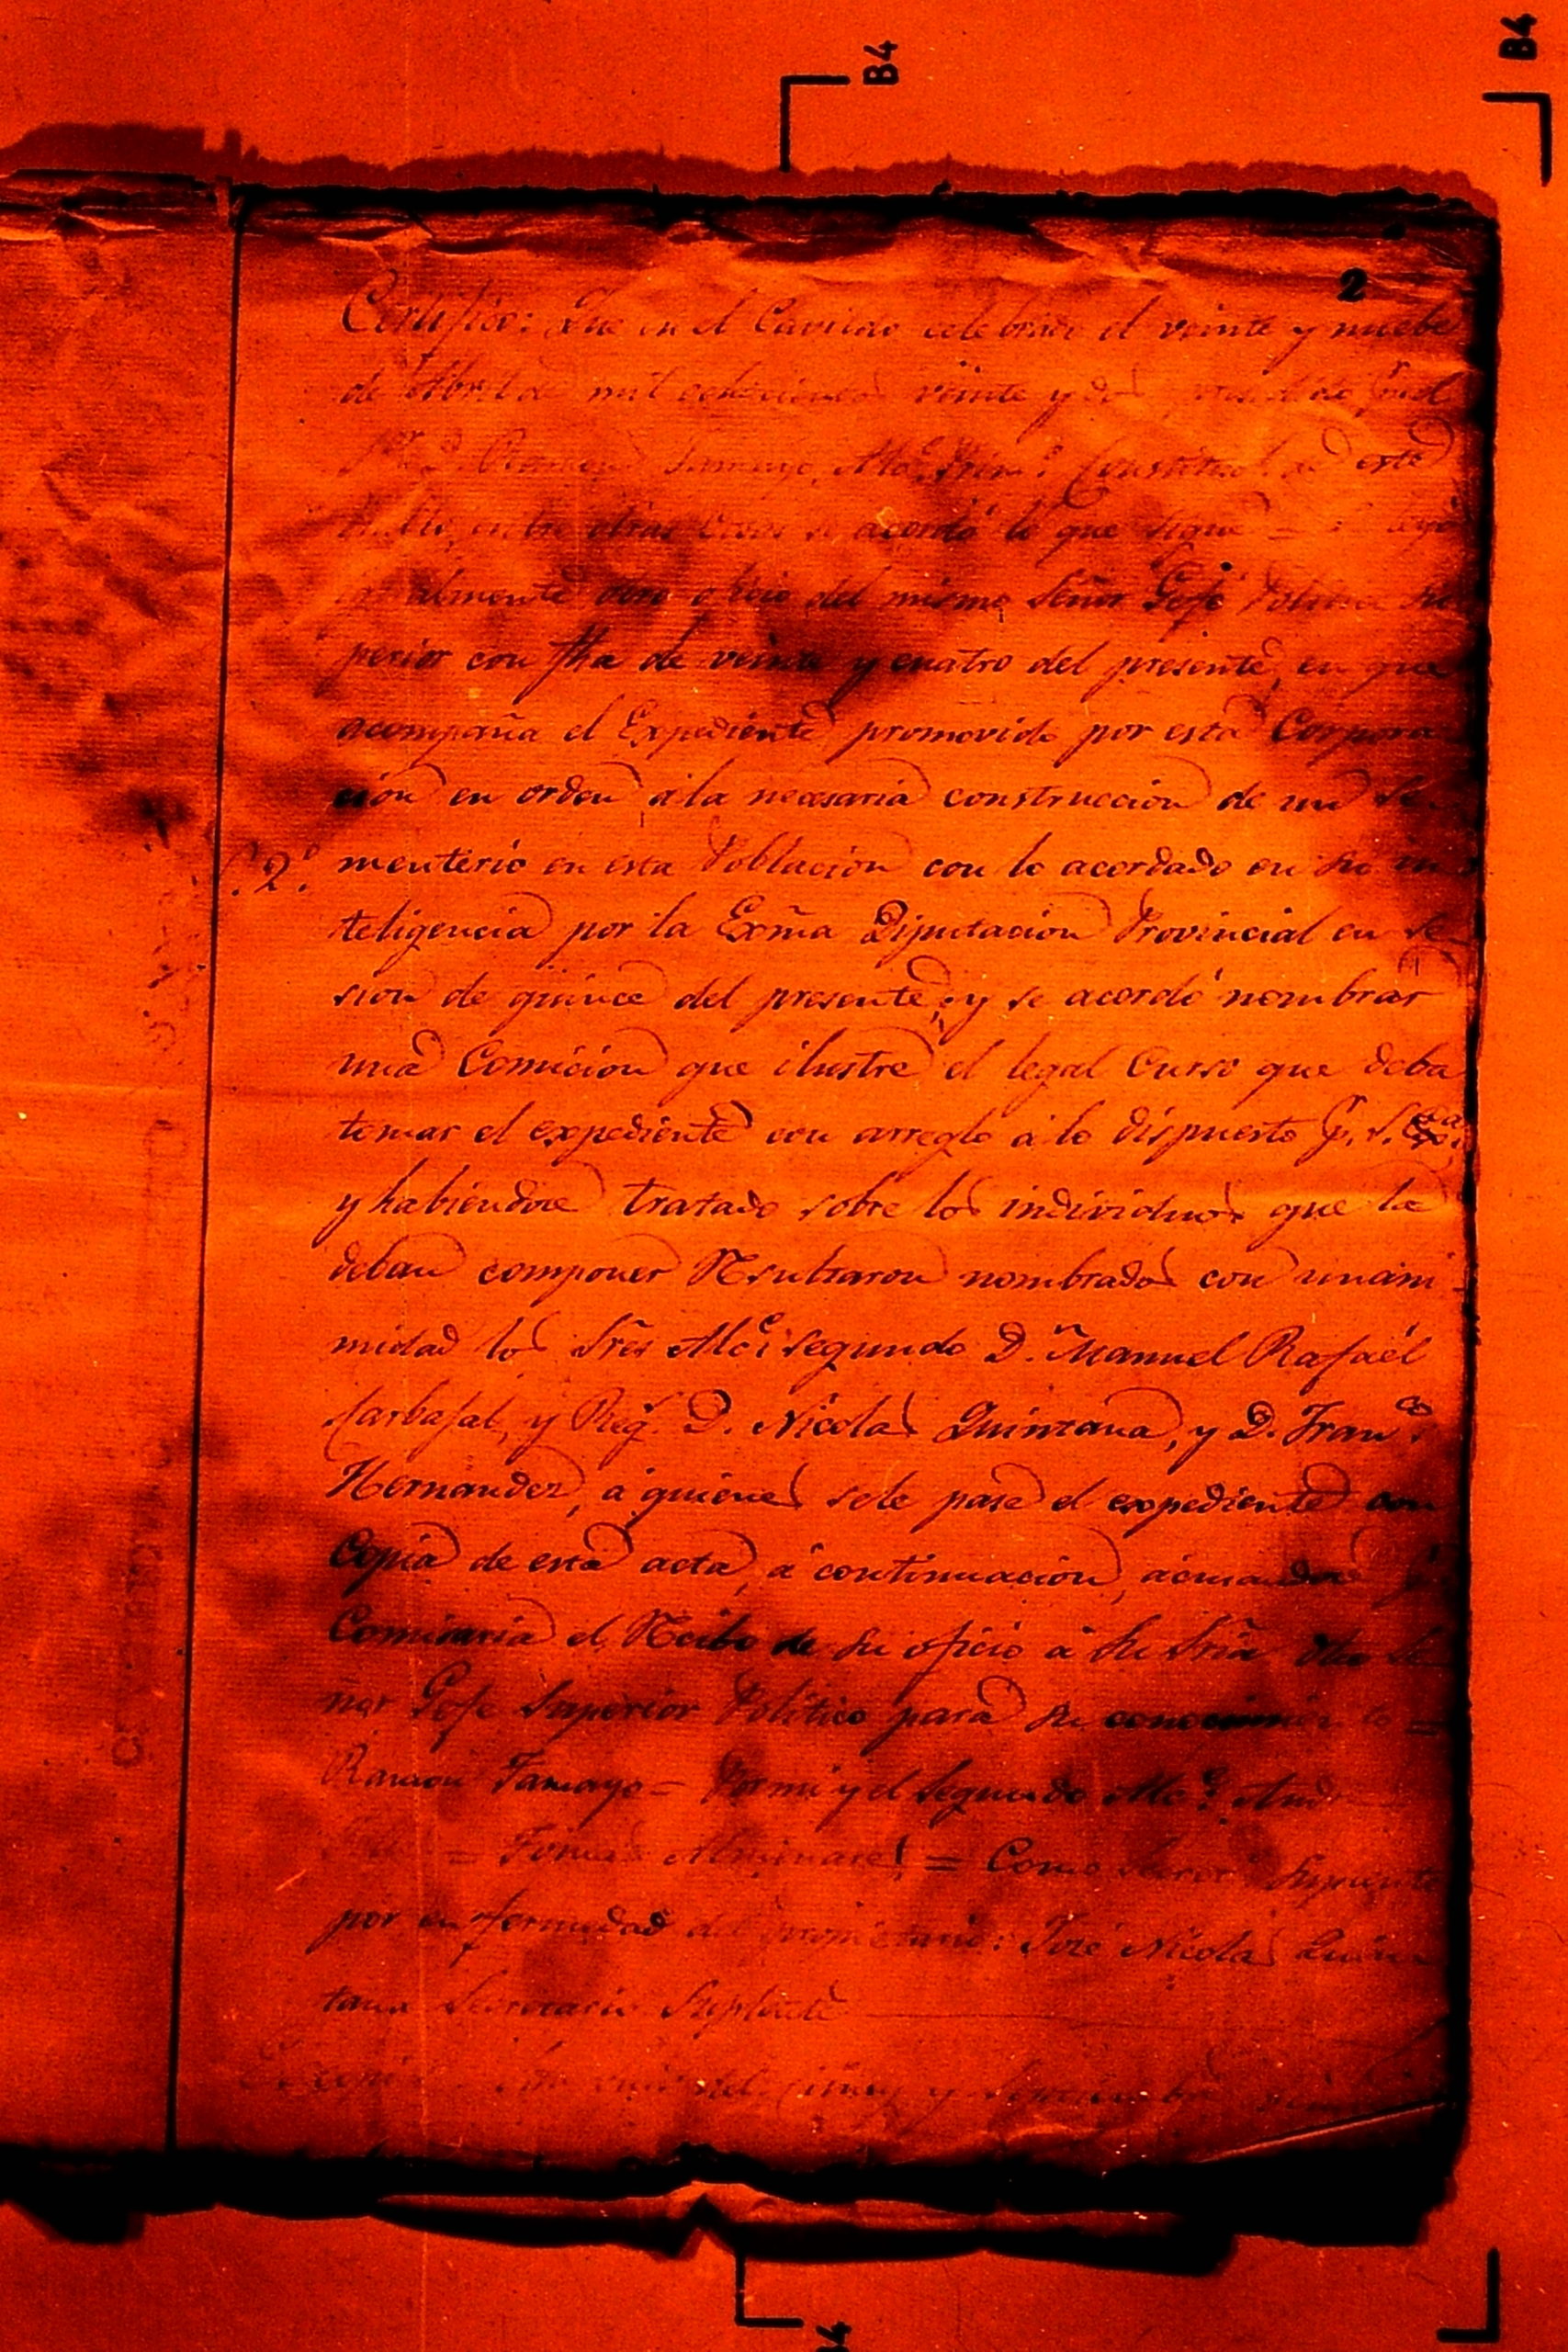 B4
B4
2
Certifico: Que en el Cavildo celebrado el veinte y nuebe
de Abril de mil ochocientos veinte y dos
Tamayo, Alc.e Prim.o Constitul. de este
entre otras cosas se acordó lo que sigue =
igualmente otro oficio del mismo Señor Gefe Politico Su
perior con fha de veinte y cuatro del presente, en que
acompaña el Expediente promovido por esta Corpora
cion en orden á la necesaria construccion de un Se
C. 2.o menterio en esta Poblacion con lo acordado en su in
teligencia por la Exma Diputacion Provincial en se
sion de quince del presente; y se acordó nombrar
una Comicion que ilustre el legal Curso que deba
tomar el expediente con arreglo á lo dispuesto p.r S. Exa.
y habiendose tratado sobre los individuos que la
deban componer Resultaron nombrados con unani
midad los Sres Alc.e segundo D.n Manuel Rafaél
Carbajal, y Reg.s D. Nicolas Quintana, y D. Fran.co
Hernandez, á quienes se le pase el expediente con
Copia de esta acta, á continuacion, acusandose p.r
Comisaria el Recibo de su oficio á Su Sria dho Se
ñor Gefe Superior Politico para su conocimiento =
Ramon Tamayo = Por mi y el Segundo Alc.e
= Tomas Alminares = Como Secret.o Suplente
por enfermedad del propietario: José Nicolas Quin
tana Secretario Suplente
B4